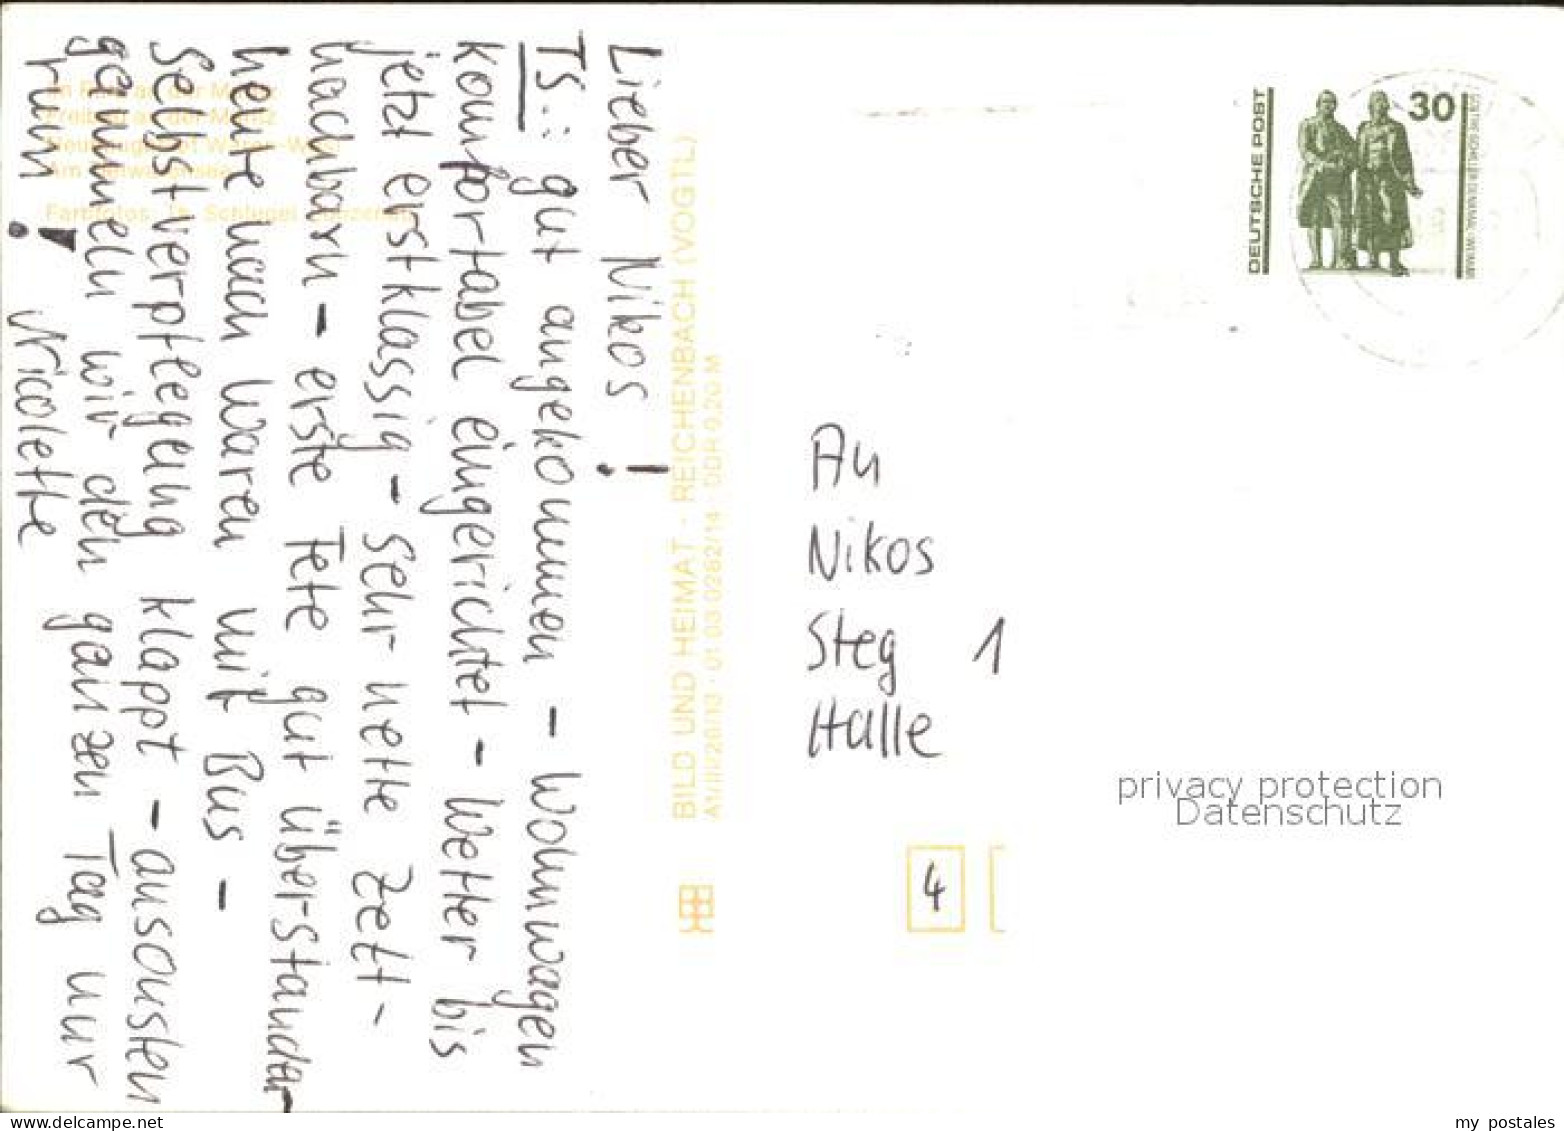 Lieber Nikos!
TS.: gut angekommen - Wohnwagen
komfortabel eingerichtet - Wetter bis
jetzt erstklassig - sehr nette Zelt-
nachbarn - erste Fete gut überstanden
heute nach Waren mit Bus -
Selbstverpflegung klappt - ansonsten
gammeln wir den ganzen Tag nur
rum! Nicolette
Farbfotos:
BILD UND HEIMAT · REICHENBACH (VOGTL)
A1/III/26/13 · 01 03 0262/14 · DDR 0,20 M
DEUTSCHE POST
30
GOETHE-SCHILLER-DENKMAL · WEIMAR
An
Nikos
Steg 1
Halle
privacy protection
Datenschutz
4
www.delcampe.net
my_postales